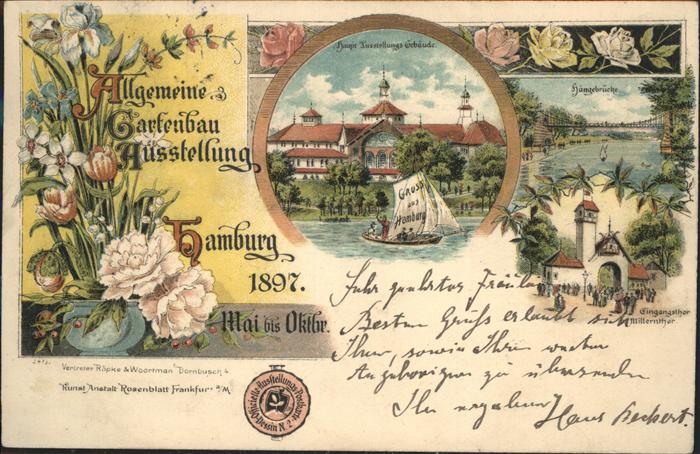 Allgemeine
Gartenbau
Ausstellung
Hamburg
1897.
Mai bis Oktbr.
Haupt Ausstellungs Gebäude.
Gruss
aus
Hamburg
Hängebrücke.
Eingangsthor
Millernthor.
Sehr geehrtes Fräulein
Besten Gruß erlaubt sich
Ihnen, sowie Ihren werten
Angehörigen zu übersenden
Ihr ergebener Hans
Vertreter Röpke & Woortman Dornbusch 4
Kunst Anstalt Rosenblatt Frankfurt a/M.
Officielle Ausstellungs-Postkarte
Dessin N. 2